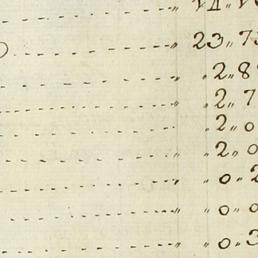 23 " 73
" 2 " 8
" 2 " 7
" 2 " 0
" 2 " 0
" 0 " 2
" 0 " 0
" 0 " 3